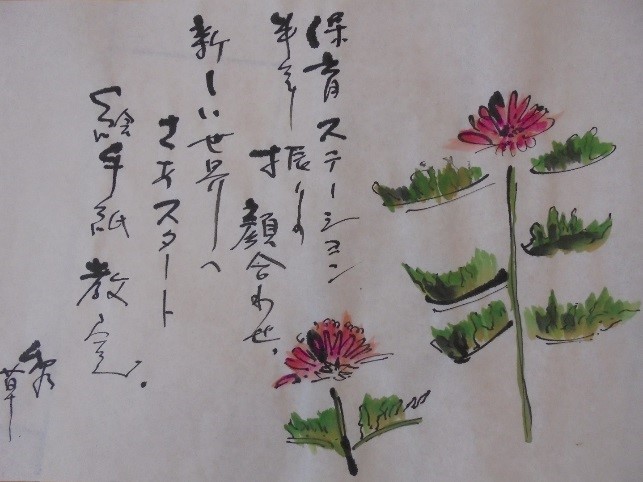 保育ステーション
半年振りの
顔合わせ。
新しい世界へ
さあスタート
絵手紙教室。
秀草